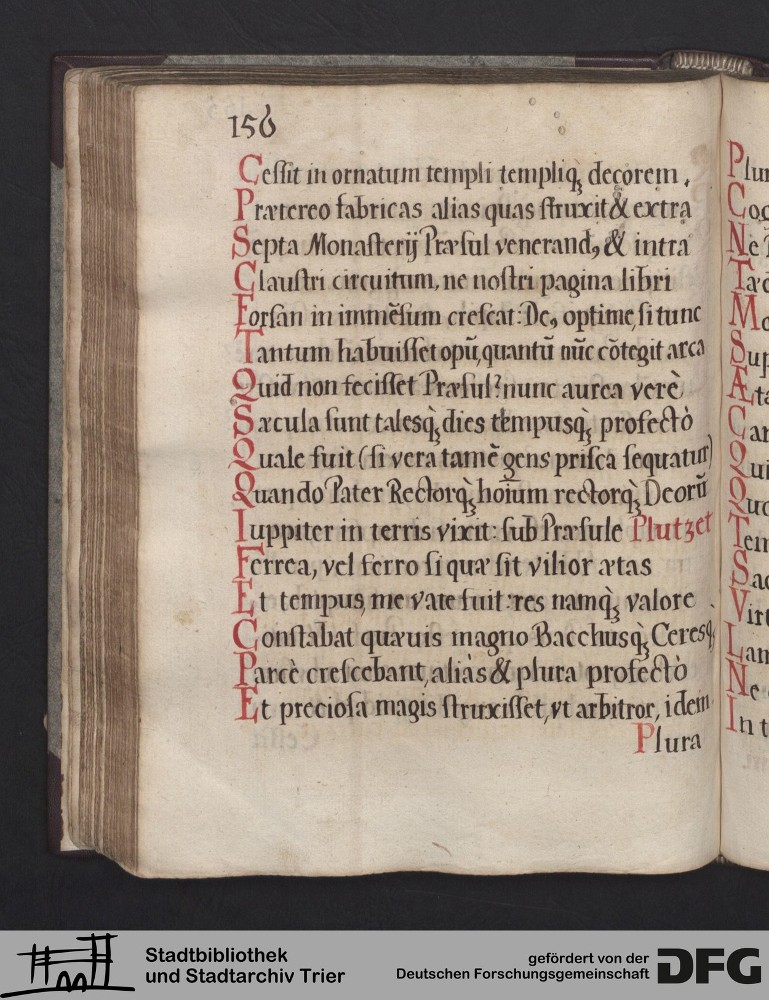 156
Cessit in ornatum templi templiq́ꝫ decorem.
Prætereo fabricas alias quas struxit & extra
Septa Monasterij Præsul venerandꝯ, & intra
Claustri circuitum, ne nostri pagina libri
Forsan in immẽsum crescat: Deꝯ optime, si tunc
Tantum habuisset opũ, quantũ nũc cõtegit arca
Quid non fecisset Præsul? nunc aurea verè
Sæcula sunt talesq́ꝫ dies tempusq́ꝫ profectò
Quale fuit (si vera tamẽ gens prisca sequatur)
Quando Pater Rectorq́ꝫ hoĩum rectorq́ꝫ Deorũ
Iuppiter in terris vixit: sub Præsule Plutzet
Ferrea, vel ferro si quæ sit vilior ætas
Et tempus, me vate fuit: res namq́ꝫ valore
Constabat quævis magno Bacchusq́ꝫ Ceresq́ꝫ
Parcè crescebant, aliàs & plura profectò
Et preciosa magis struxisset, vt arbitror, idem
Plura
Plu
Coc
Ne
Tæd
Mo
Sup
Æta
Car
Qui
Quo
Tem
Sac
Virt
Lam
Ne
In t
Stadtbibliothek
und Stadtarchiv Trier
gefördert von der
Deutschen Forschungsgemeinschaft
DFG